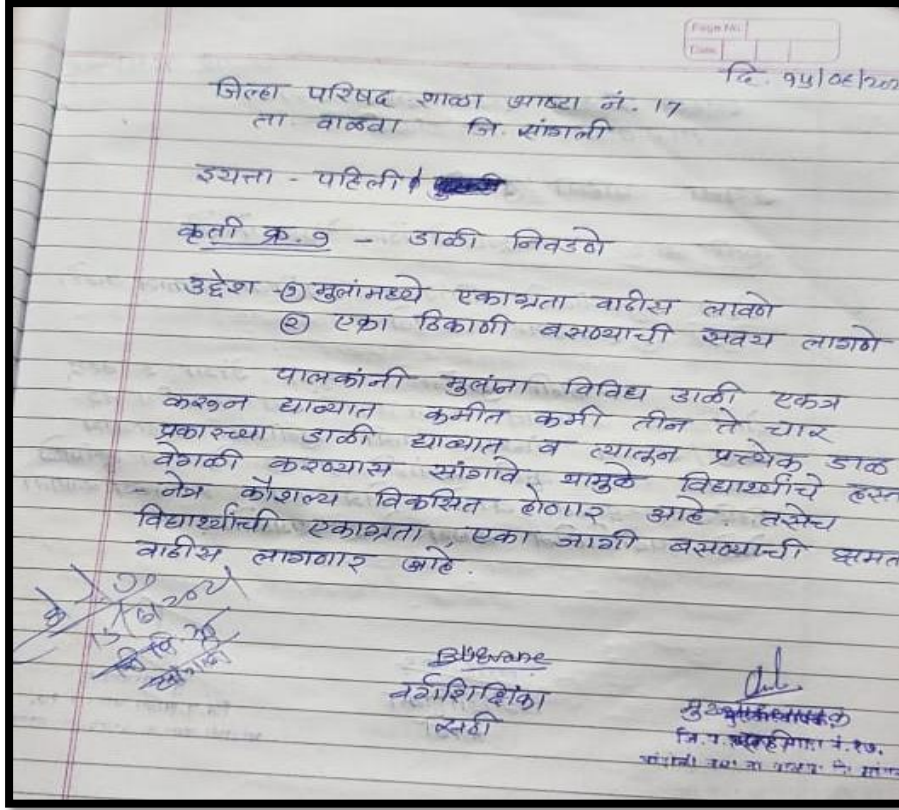 Page No.
Date
दि. १५/०६/२०२
जिल्हा परिषद शाळा आष्टा नं. 17
ता वाळवा जि. सांगली
इयत्ता - पहिली
कृती क्र. १ - डाळी निवडणे
उद्देश - १ मुलांमध्ये एकाग्रता वाढीस लावणे
२ एका ठिकाणी बसण्याची सवय लागणे
पालकांनी मुलांना विविध डाळी एकत्र
करून द्याव्यात कमीत कमी तीन ते चार
प्रकारच्या डाळी द्याव्यात व त्यातून प्रत्येक डाळ
वेगळी करण्यास सांगावे यामुळे विद्यार्थ्यांचे हस्त
- नेत्र कौशल्य विकसित होणार आहे. तसेच
विद्यार्थ्यांची एकाग्रता, एका जागी बसण्याची क्षमत
वाढीस लागणार आहे.
वर्गशिक्षिका
सही
मुख्याध्यापक